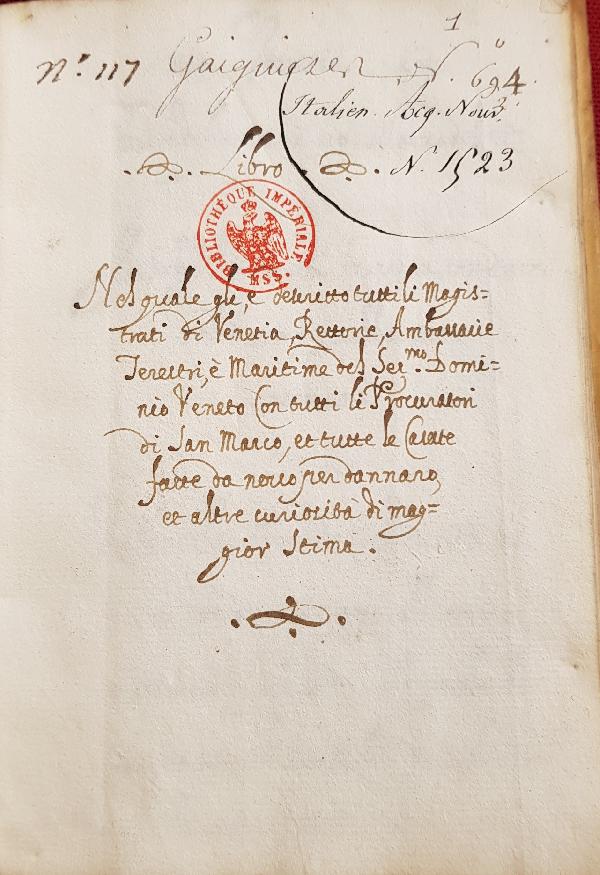 1
N.º 117 Gaignieres N.º 694.
Italien. Acq. Nouv.
Libro
N. 1523
BIBLIOTHÈQUE IMPÉRIALE
MSS.
Nel quale gli, è descritto tutti li Magis=
trati di Venetia, Rettorie, Ambassarie
Terestri, è Maritime del Ser.mo Domi=
nio Veneto Con tutti li Procuratori
di San Marco, et tutte le Casate
fatte da novo per dannaro,
et altre curiosità di mag=
gior Stima.